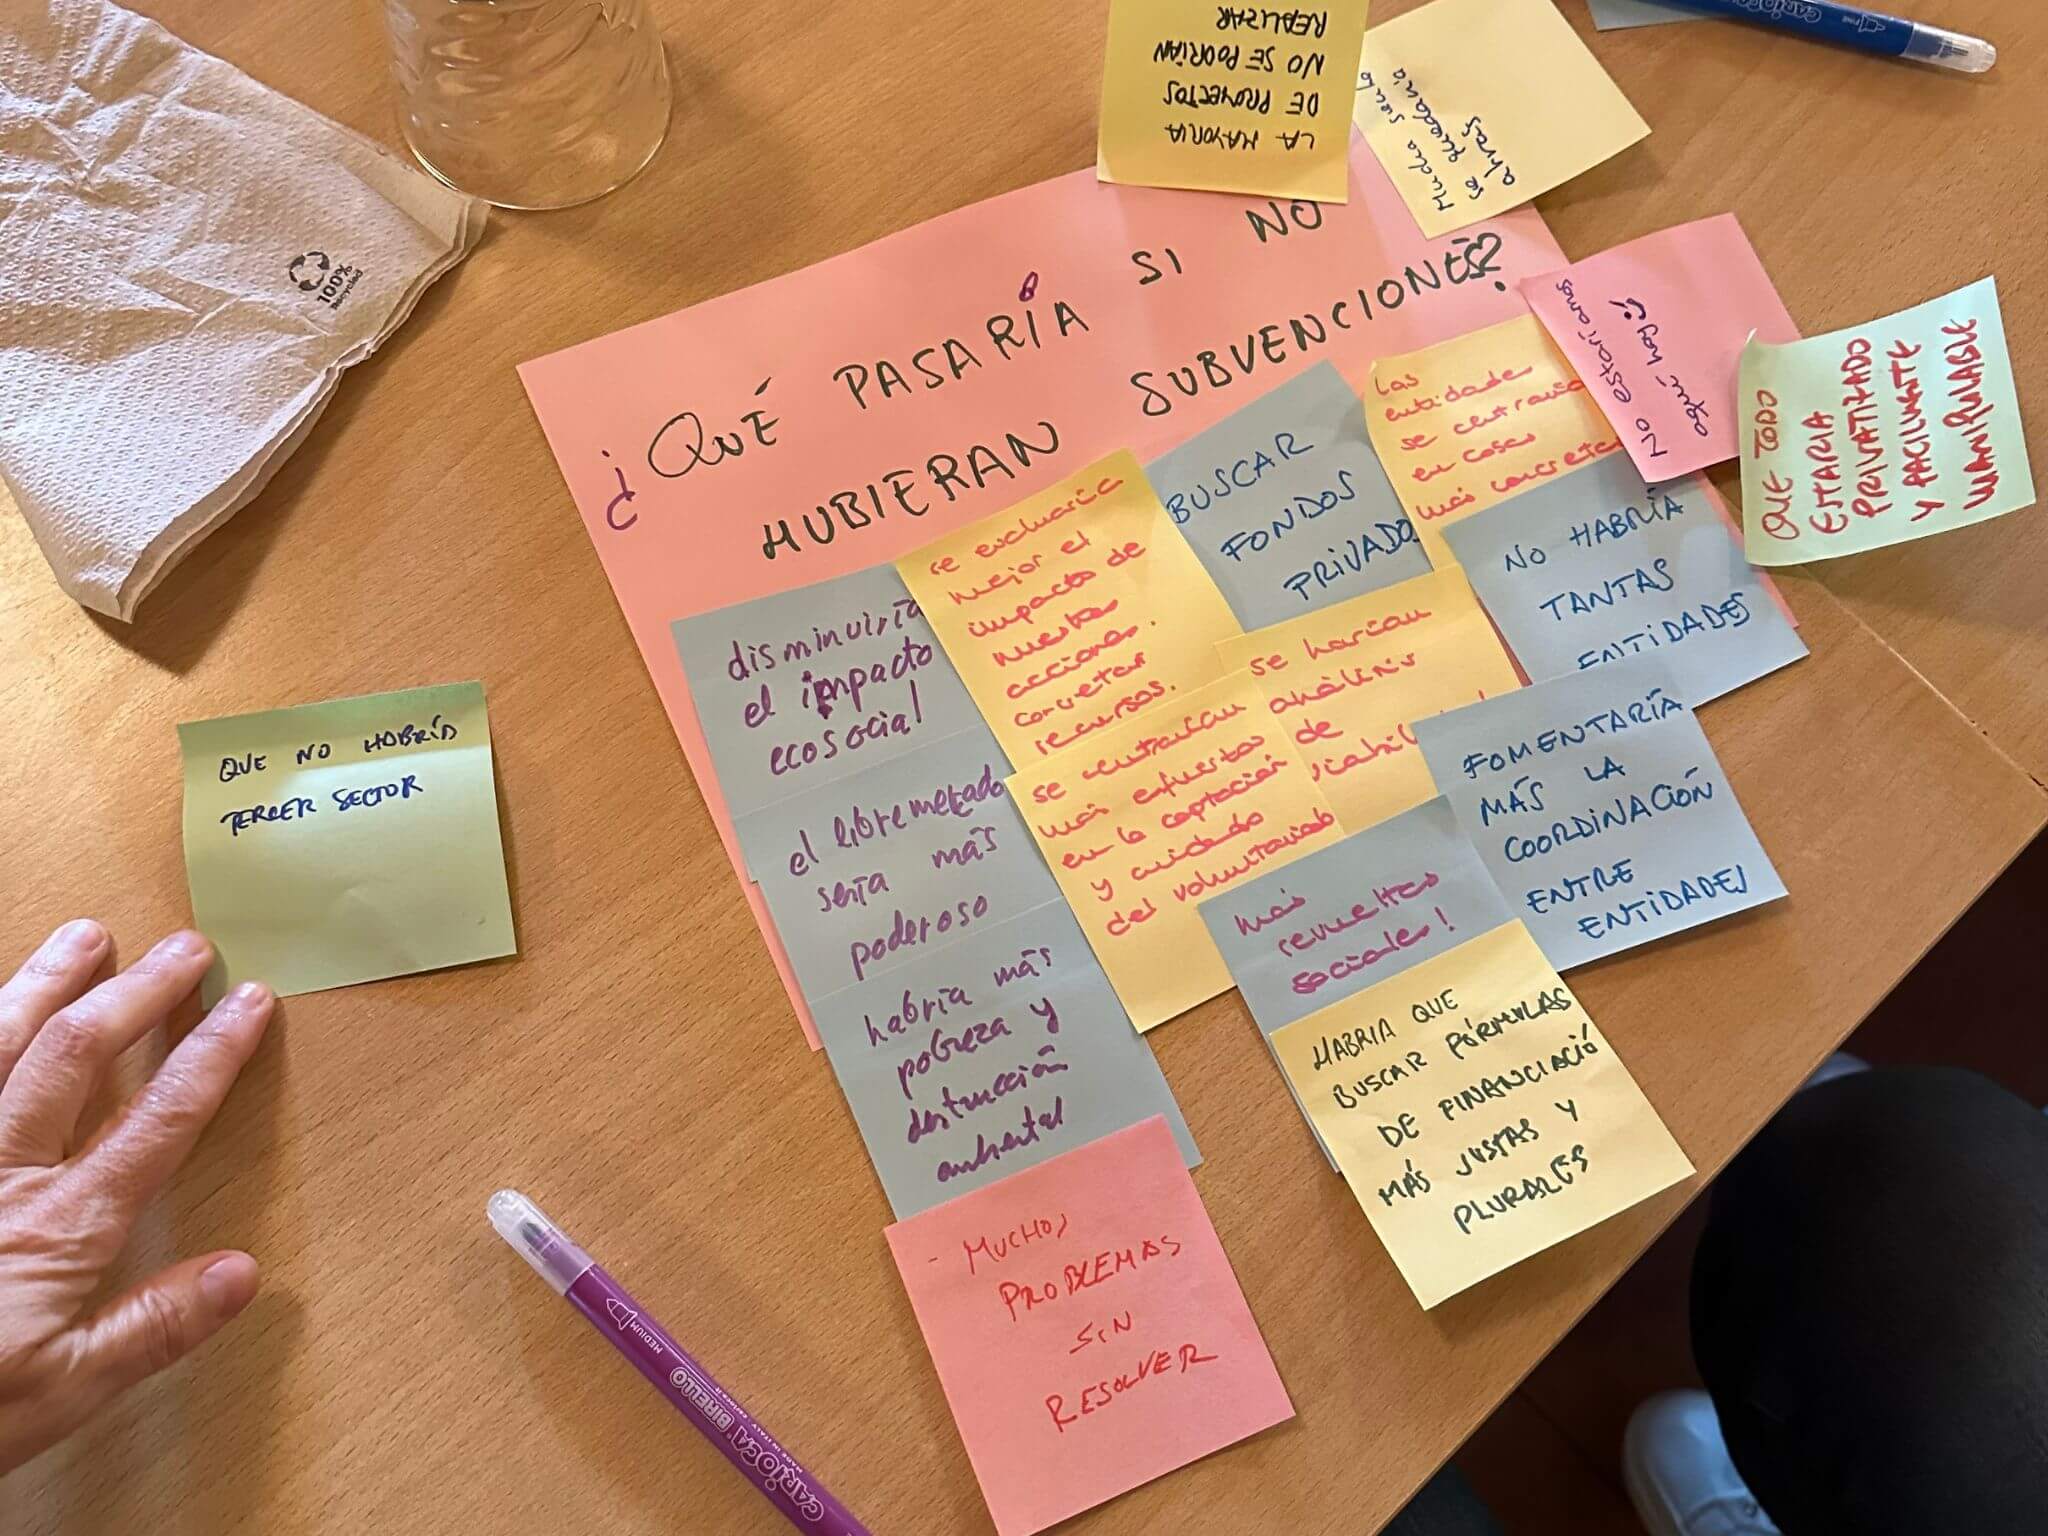 LA MAYORIA
DE PROYECTOS
NO SE PODRÍAN
REALIZAR
Mucha
se quedaría
atrás
CARIOCA
¿QUÉ PASARÍA SI NO
HUBIERAN SUBVENCIONES?
100%
Recycled
No estaríamos
aquí hoy
QUE TODO
ESTARIA
PRIVATIZADO
Y FACILMENTE
MANIPULABLE
Las
entidades
se centrarían
en cosas
más concretas
BUSCAR
FONDOS
PRIVADOS
NO HABRÍA
TANTAS
ENTIDADES
se evaluaría
mejor el
impacto de
nuestras
acciones.
concretar
recursos.
disminuiría
el impacto
ecosocial
se harían
análisis
de
viabilidad
QUE NO HABRÍA
TERCER SECTOR
se centrarían
más esfuerzos
en la captación
y cuidado
del voluntariado
FOMENTARÍA
MÁS LA
COORDINACIÓN
ENTRE
ENTIDADES
el libre mercado
sería más
poderoso
más
revueltas
sociales!
habría más
pobreza y
destrucción
ambiental
HABRIA QUE
BUSCAR FÓRMULAS
DE FINANCIACIÓ
MÁS JUSTAS Y
PLURALES
- MUCHOS
PROBLEMAS
SIN
RESOLVER
MEDIUM
CARIOCA BIRELLO
MADE IN ITALY